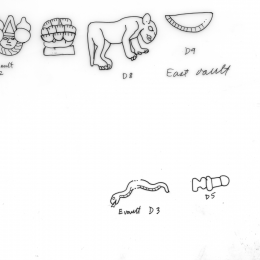 ault
2
D8
D9
East vault
E vault D3
D5